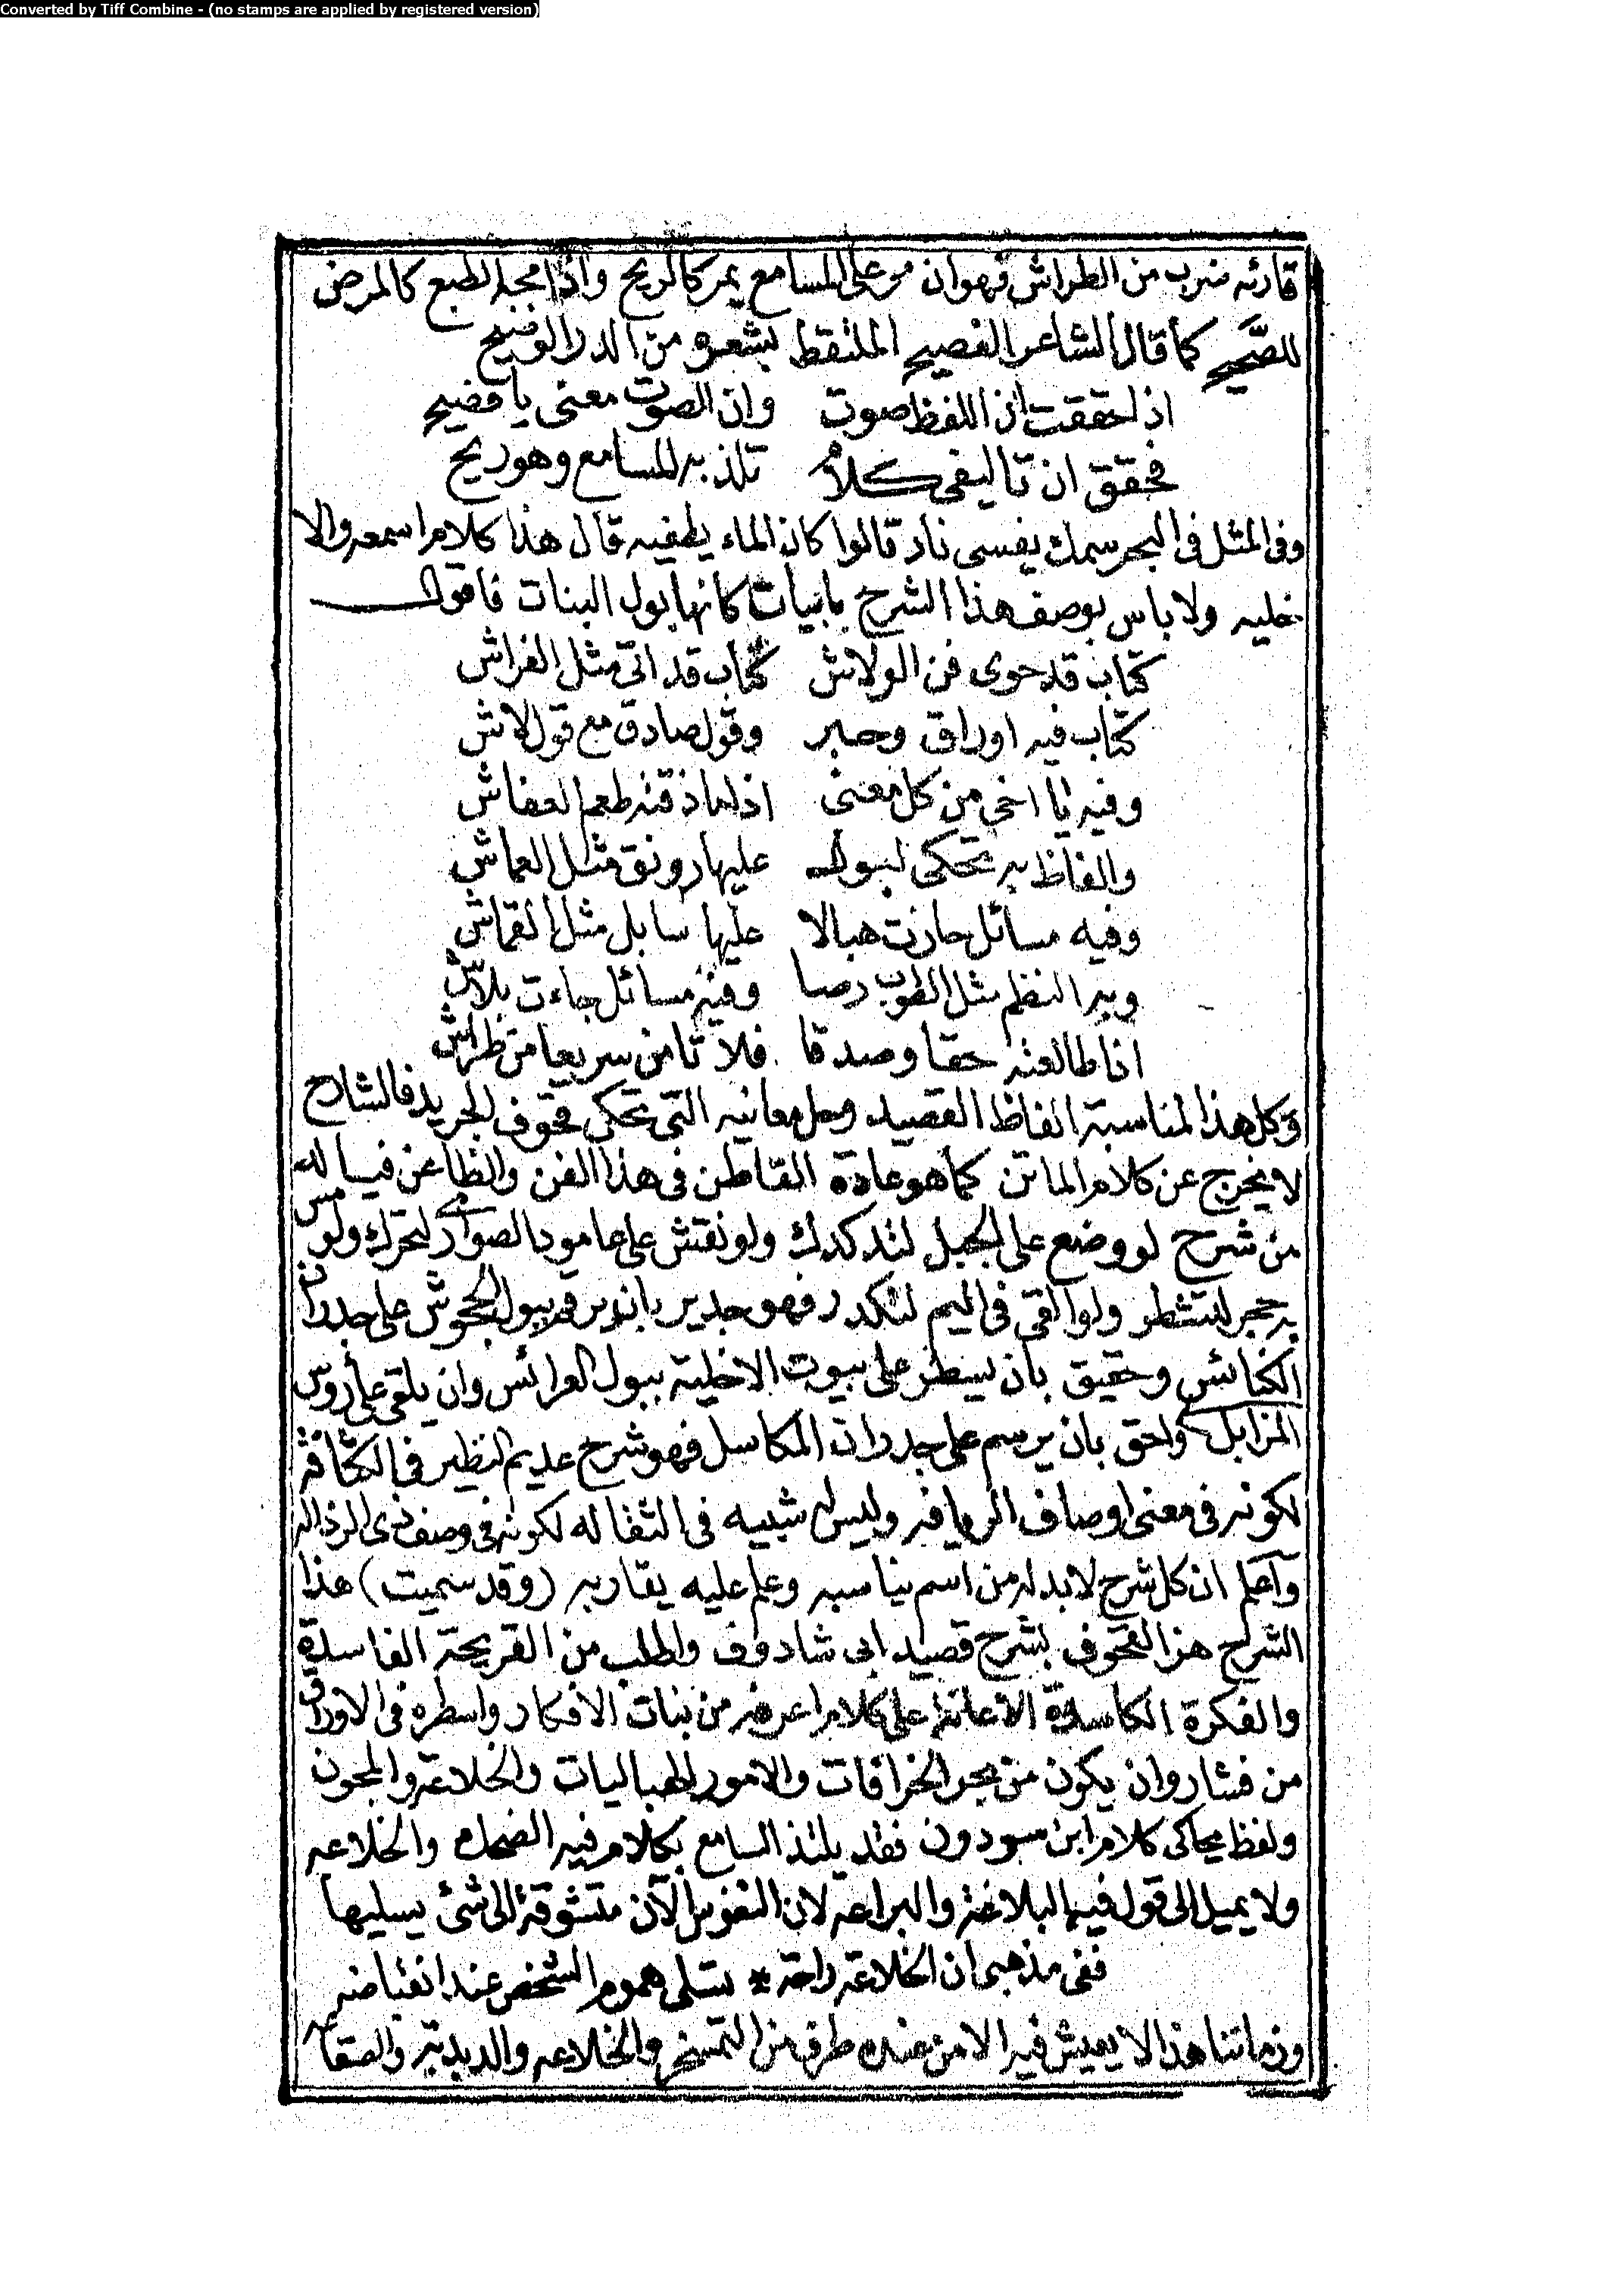 Converted by Tiff Combine - (no stamps are applied by registered version)
قارئه ضرب من الطراش فهو ان مر على المسامع يمر كالريح واذا مجه الطبع كالمرض
للصحيح كما قال الشاعر الفصيح الملتقط بشعره من الدر الوضيح
اذا حققت ان اللفظ صوت وان الصوت معنى يا فصيح
فحقق ان تاليفى كلام تلذ به المسامع وهو ريح
وفى المثل فى البحر سمك يفسى نار قالوا كان الماء يطفيه قال هذا كلام اسمعه والا
خليه ولا باس بوصف هذا الشرح بابيات كانها بول البنات فاقول
كتاب قد حوى فن الولاش كتاب قد اتى مثل الفراش
كتاب فيه اوراق وحبر وقول صادق مع قول لاش
وفيه يا اخى من كل معنى اذا ما ذقته طعم العفاش
والفاظ به تحكى لبول عليها رونق مثل العماش
وفيه مسائل حازت هبالا عليها سابل مثل القماش
وبه النظم مثل الطوب رصا وفيه مسائل جاءت بلاش
اذا طالعته حقا وصدقا فلا تامن سريعا من طراش
وكل هذا لمناسبة الفاظ القصيد وحل معانيه التى تحكى قحوف الجريد فالشارح
لا يخرج عن كلام الماتن كما هو عادة القاطن فى هذا الفن والظاعن فيا له
من شرح لو وضع على الجبل لتدكدك ولو نقش على عامود الصوارى لتحرك ولو مس
به حجر لتشطر ولو القى فى اليم لتكدر فهو جدير بان يرقم ببول الجحوش على جدران
الكنائس وحقيق بان يسطر على بيوت الاخلية ببول العرائس وان يلقى على روس
المزابل واحق بان يرسم على جدران المكاسل فهو شرح عديم النظير فى الكثافة
لكونه فى معنى اوصاف الريافه وليس له شبيه فى الثقاله لكونه فى وصف ذوى الرذاله
واعلم ان كل شرح لا بد له من اسم يناسبه وعلم عليه يقاربه (وقد سميت) هذا
الشرح هز القحوف بشرح قصيد ابى شادوف واطلب من القريحة الفاسدة
والفكرة الكاسدة الاعانة على كلام اعرفه من بنات الافكار واسطره فى الاوراق
من فشار وان يكون من بحر الخرافات والامور الهباليات والخلاعة والمجون
ولفظ يحاكى كلام ابن سودون فقد يلتذ السامع بكلام فيه الضحك والخلاعه
ولا يميل الى قول فيه البلاغة والبراعه لان النفوس الآن متشوقة الى شئ يسليها
ففى مذهبى ان الخلاعة راحة * تسلى هموم الشخص عند انقباضه
وزماننا هذا لا يعيش فيه الا من عنده طرف من التمسخر والخلاعه والدبدبة والصقاعه